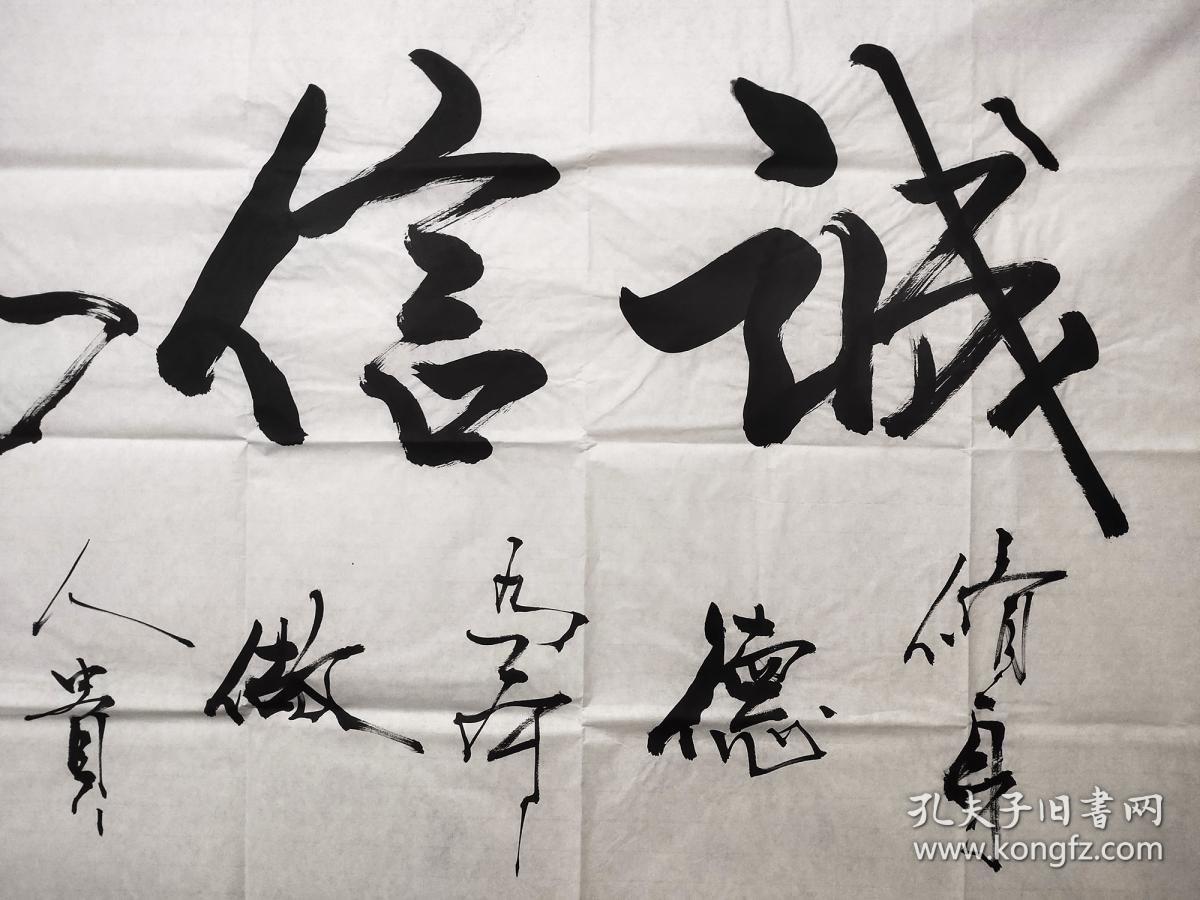 誠信
修身
德
為
做
人貴
孔夫子旧书网
www.kongfz.com